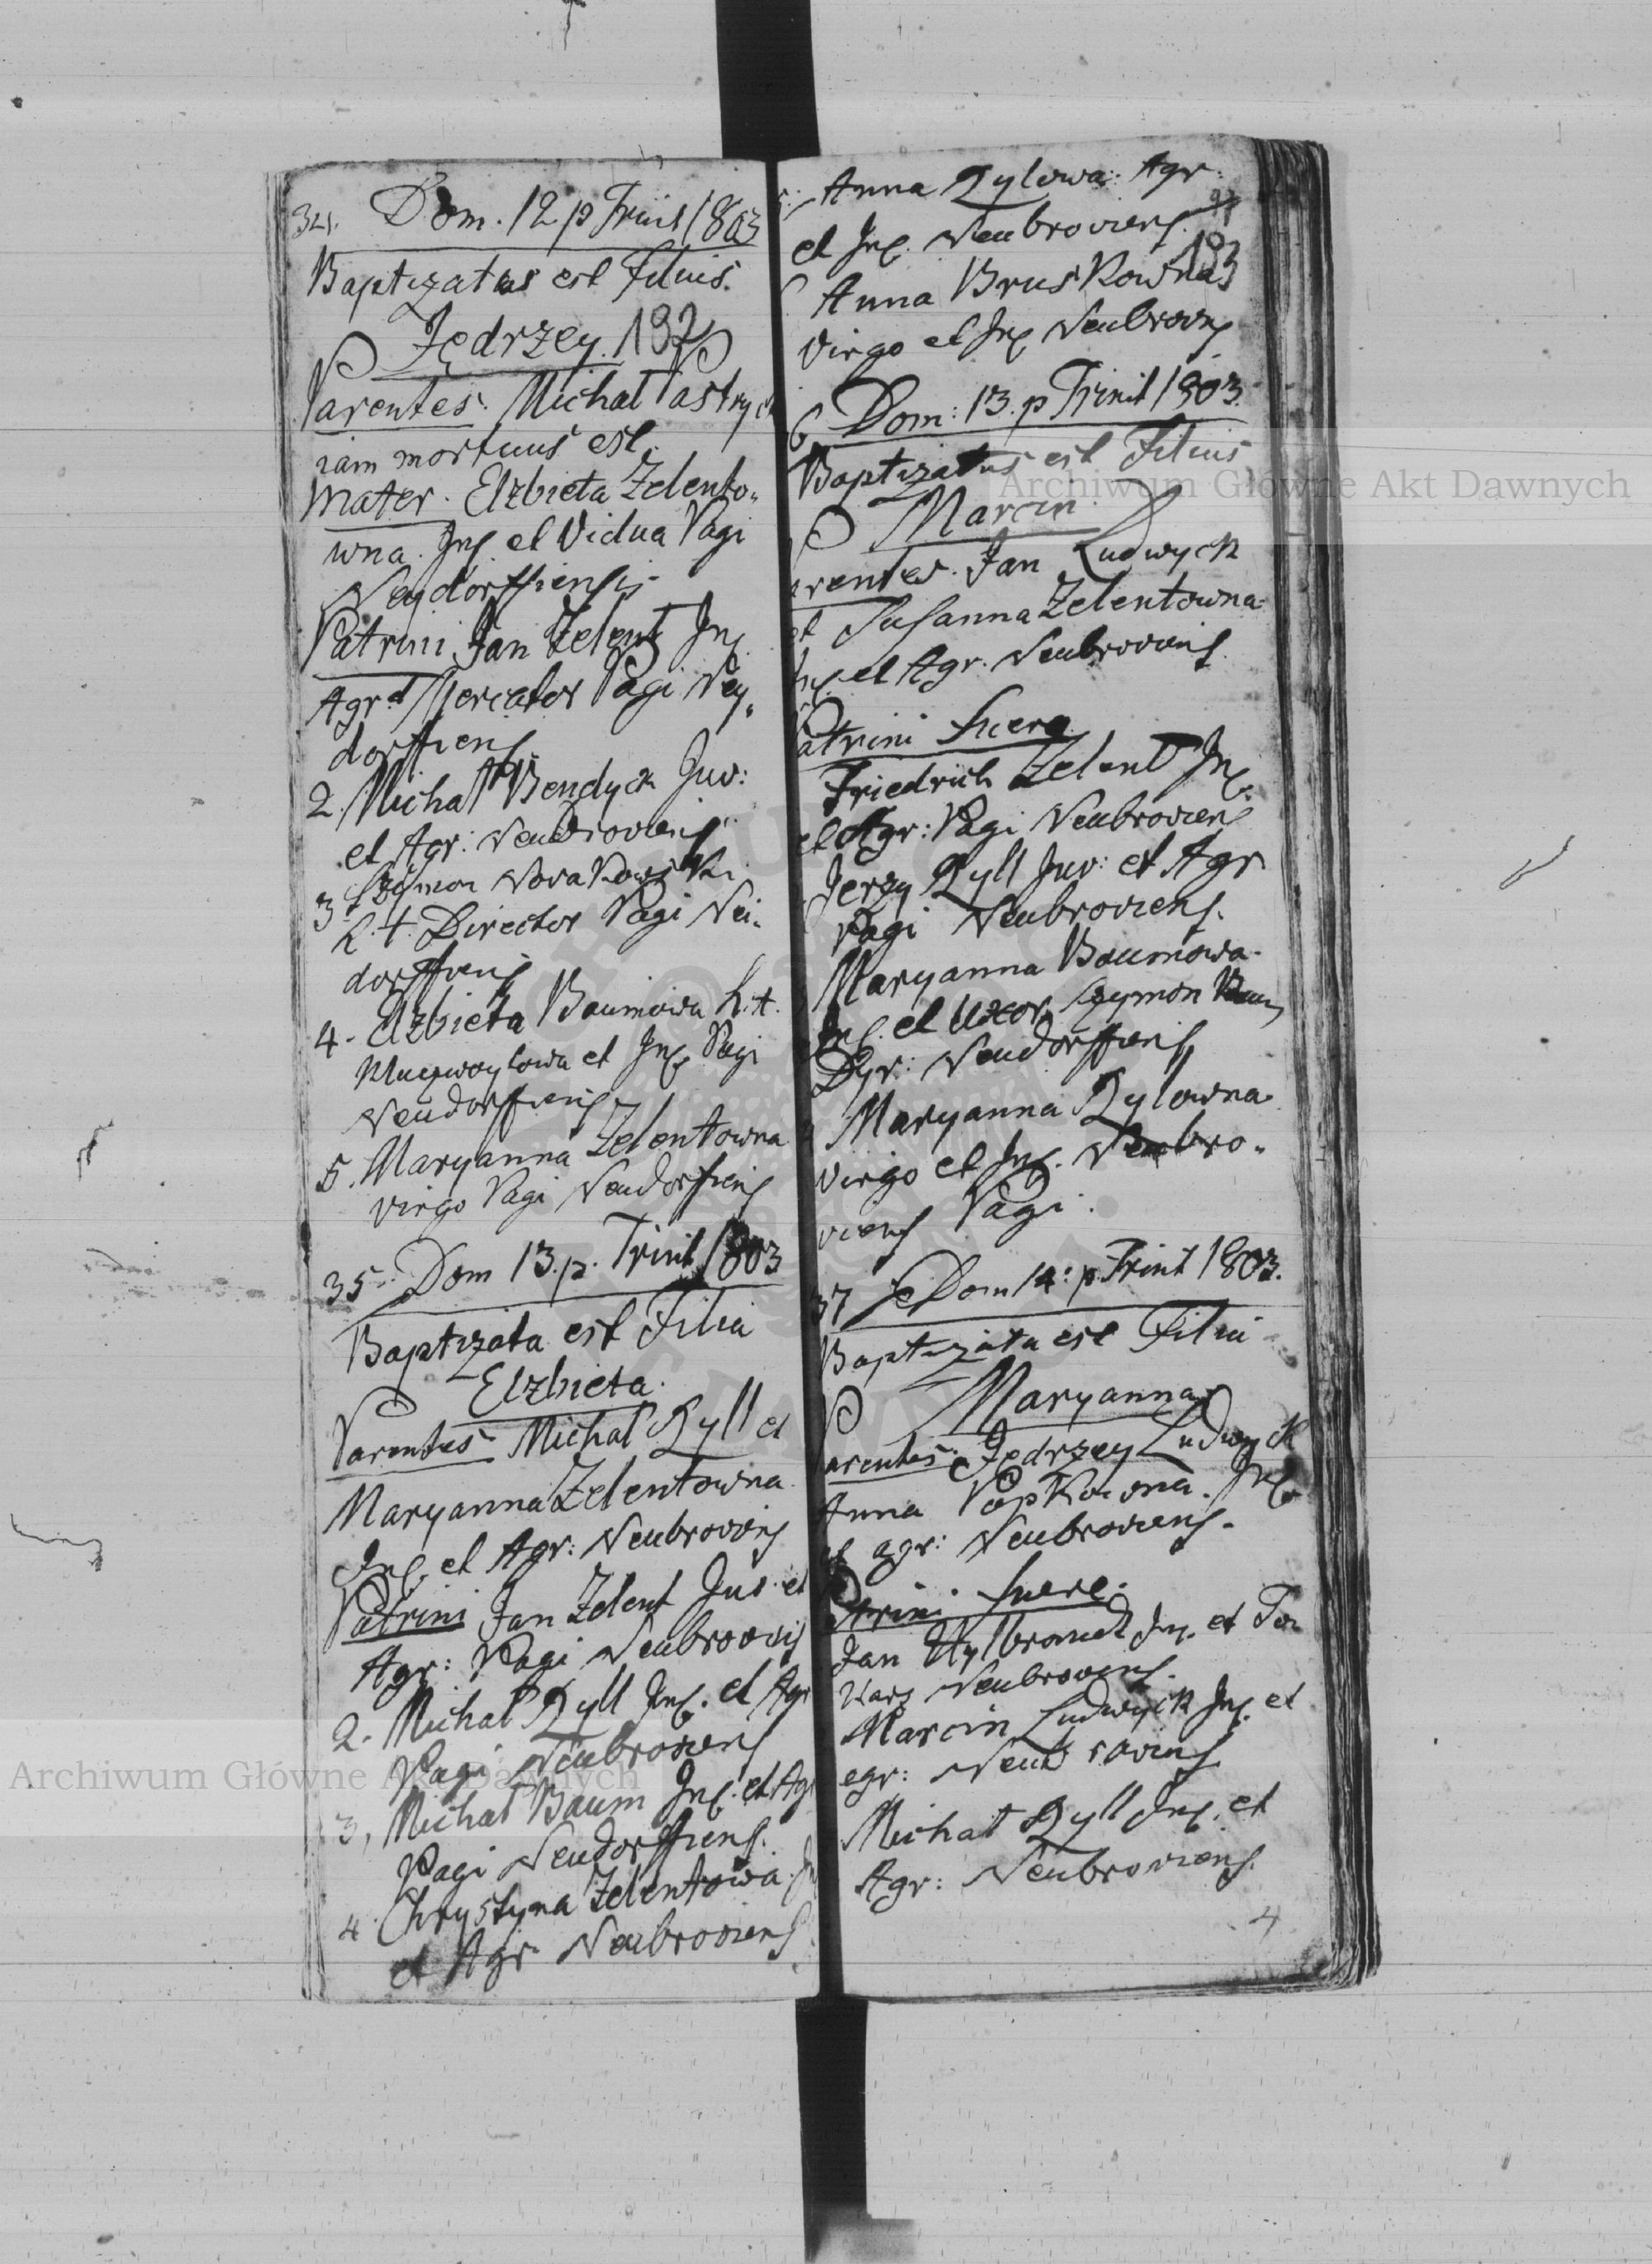 34. Dom. 12 p Trinit 1803
Baptizatus est Filius.
Jędrzey. 192
Parentes. Michał Pastryck
iam mortuus est.
Mater. Elzbieta Zelento„
wna. Inq. et Vidua Pagi
Neydorffiensis
Patrini Jan Zelent Inq.
Agr. et Mercator Pagi Ney„
dorffiens
2. Michał Bendyck Juv:
et Agr: Neubroviens
3. Szymon Novakowski
h. t. Director Pagi Nei„
dorffiens
4. Elzbieta Baumowa h. t.
et Inq. Pagi
Neudorffiens
5. Maryanna Zelentowna
virgo Pagi Neudorffiens
35. Dom 13. p. Trinit 1803
Baptizata est Filia
Elzbieta.
Parentes Michał Ryll et
Maryanna Zelentowna
Inq. et Agr: Neubroviens
Patrini Jan Zelent Juv. et
Agr: Pagi Neubroviens
2. Michał Ryll Inq. et Agr
Pagi Neubroviens
3, Michał Baum Inq. et Agr
Pagi Neudorffiens.
4. Chrystyna Zelentowa
et Agr Neubroviens
Anna Rylowa. Agr.
et Inq. Neubroviens. 98
Anna Bruskowna 193
virgo et Inq Neubrovns
6 Dom: 13. p Trinit 1803.
Baptizatus est Filius
Archiwum Główne Akt Dawnych
Marcin.
Parentes. Jan Ludwyck
et Susanna Zelentowna
Inq. et Agr. Neubroviens.
Patrini fuere
Friedrich Zelent Inq.
et Agr: Pagi Neubroviens
Jerzy Ryll Juv: et Agr
Pagi Neubroviens.
Maryanna Baumowa.
Inq. et Uxor Szymon Baum
Dyr: Neudorffiens
Maryanna Rylowna
virgo et Inq. Neubro„
viens Pagi.
37 Dom 14: p Trinit 1803.
Baptizata est Filia
Maryanna
Parentes: Jędrzey Ludwyck
Anna Popkowna. Inq.
et agr: Neubroviens.
Patrini fuere.
Jan Hylbrandt Inq. et To
karz Neubroviens.
Marcin Ludwyck Inq. et
egr: Neubroviens
Michał Ryll Inq. et
Agr: Neubroviens.
4
Archiwum Główne Akt Dawnych